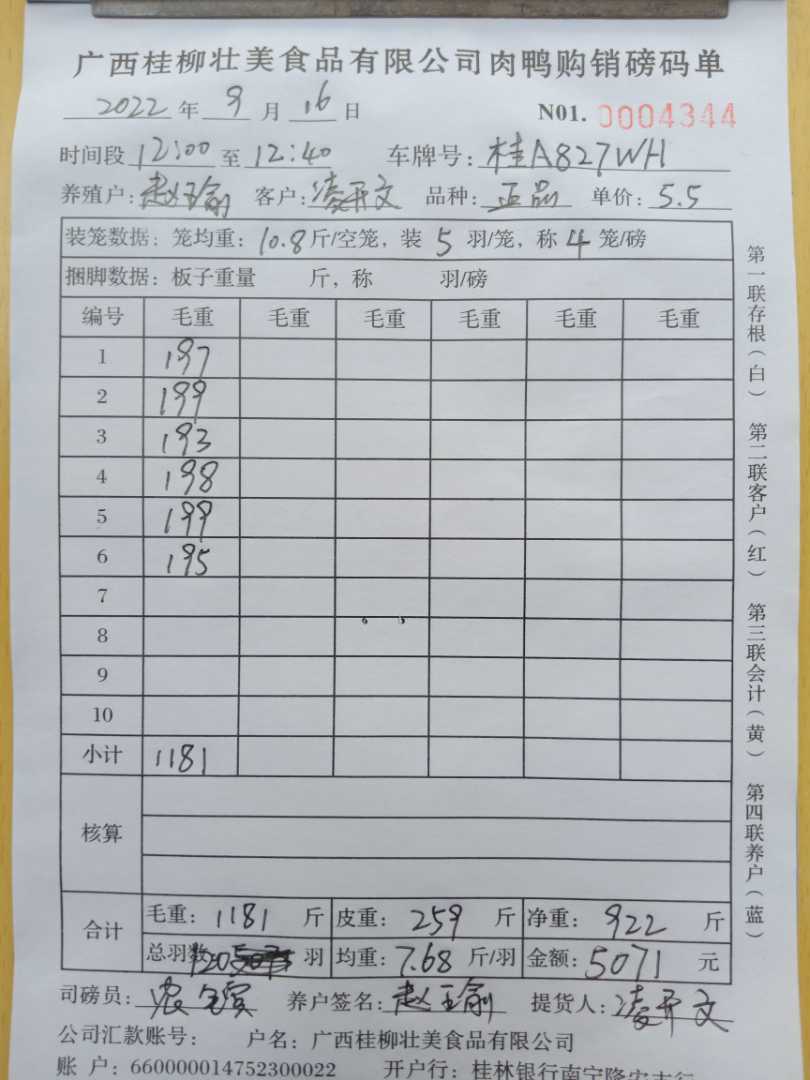 广西桂柳壮美食品有限公司肉鸭购销磅码单
2022 年 9 月 16 日 N01. 0004344
时间段 12:00 至 12:40 车牌号: 桂A827WH
养殖户: 赵玉瑜 客户: 凌开文 品种: 正品 单价: 5.5
装笼数据: 笼均重: 10.8 斤/空笼, 装 5 羽/笼, 称 4 笼/磅
捆脚数据: 板子重量 斤, 称 羽/磅
编号 毛重 毛重 毛重 毛重 毛重 毛重
1 197
2 199
3 193
4 198
5 199
6 195
7
8
9
10
小计 1181
核算
合计 毛重: 1181 斤 皮重: 259 斤 净重: 922 斤
总羽数 120 羽 均重: 7.68 斤/羽 金额: 5071 元
司磅员: 养户签名: 赵玉瑜 提货人: 凌开文
公司汇款账号: 户名: 广西桂柳壮美食品有限公司
账 户: 660000014752300022 开户行: 桂林银行南宁隆安支行
第一联存根(白) 第二联客户(红) 第三联会计(黄) 第四联养户(蓝)